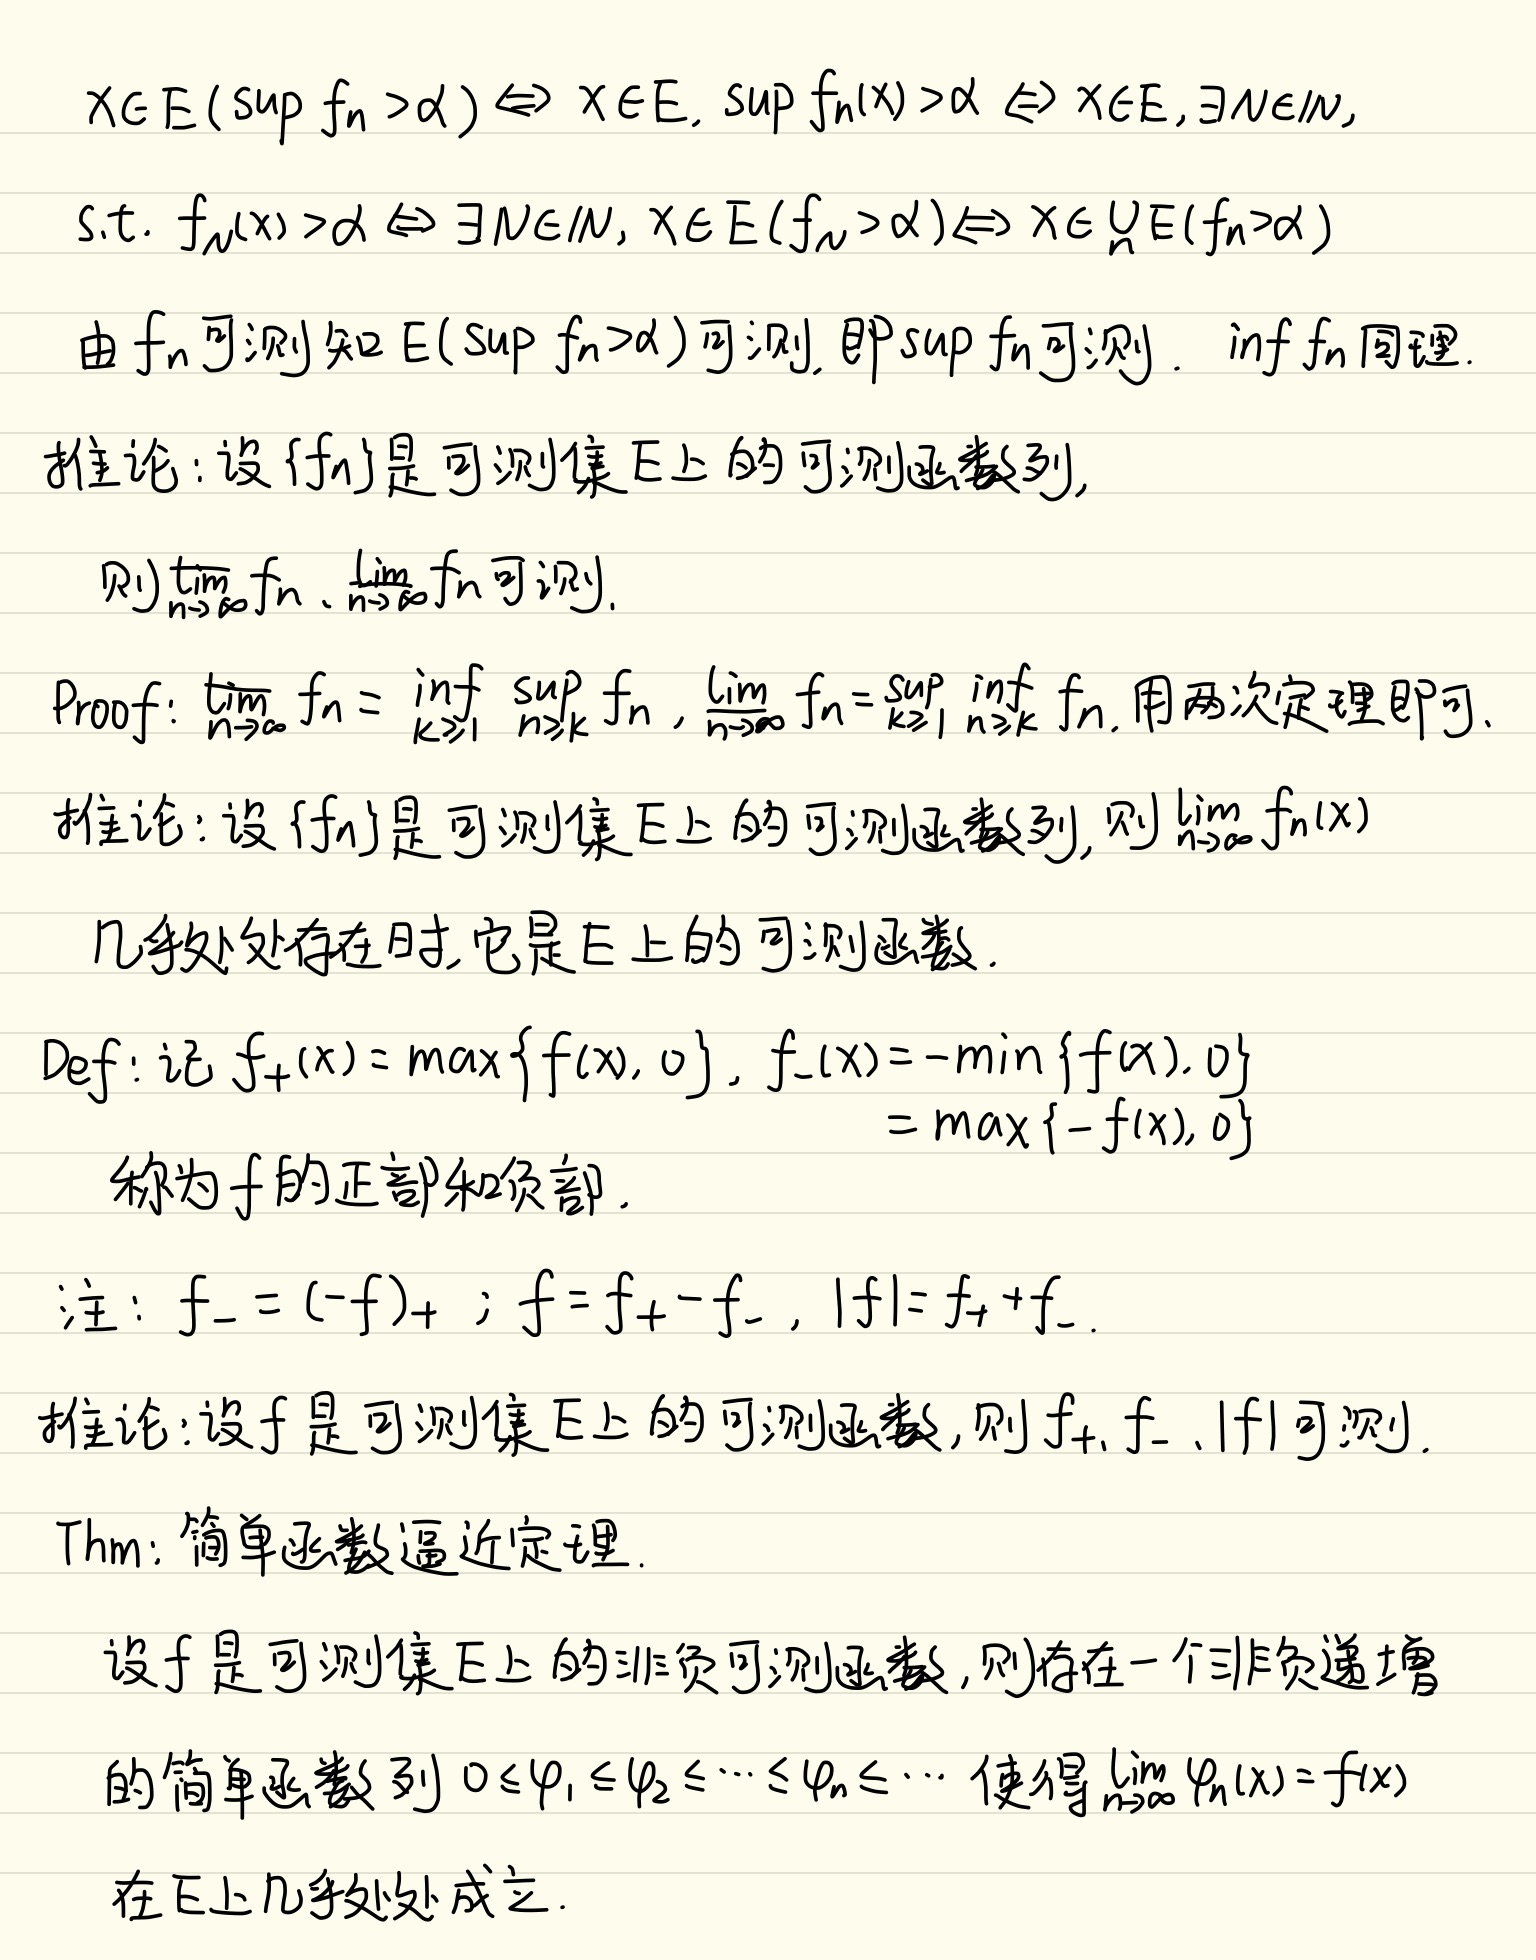 x∈E(sup fₙ>α) ⇔ x∈E, sup fₙ(x)>α ⇔ x∈E, ∃N∈ℕ,
s.t. f_N(x)>α ⇔ ∃N∈ℕ, x∈E(f_N>α) ⇔ x∈⋃_n E(fₙ>α)
由fₙ可测知E(sup fₙ>α)可测, 即sup fₙ可测. inf fₙ同理.
推论:设{fₙ}是可测集E上的可测函数列,
则\overline{lim}_{n→∞}fₙ、\underline{lim}_{n→∞}fₙ可测.
Proof: \overline{lim}_{n→∞} fₙ = inf_{k≥1} sup_{n≥k} fₙ, \underline{lim}_{n→∞} fₙ = sup_{k≥1} inf_{n≥k} fₙ. 用两次定理即可.
推论:设{fₙ}是可测集E上的可测函数列,则lim_{n→∞} fₙ(x)
几乎处处存在时,它是E上的可测函数.
Def:记 f₊(x)=max{f(x), 0}, f₋(x)=-min{f(x), 0}
=max{-f(x), 0}
称为f的正部和负部.
注: f₋=(-f)₊ ; f=f₊-f₋, |f|=f₊+f₋.
推论:设f是可测集E上的可测函数,则f₊、f₋、|f|可测.
Thm: 简单函数逼近定理.
设f是可测集E上的非负可测函数,则存在一个非负递增
的简单函数列 0≤φ₁≤φ₂≤⋯≤φₙ≤⋯ 使得lim_{n→∞} φₙ(x)=f(x)
在E上几乎处处成立.